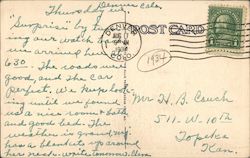 Thursday Dennis Colo.
"Surprise" by
ing our watch
we arrived here
6 30. The roads were
good, and the car
perfect. We kept look-
ing until we found
us a nice room & bath
and good bed. The
weather is grand, Mg.
has a blanket around
her neck.
DENVER
COLO.
POST CARD
1934
Mr H. B. Couch
511-W. 10th
Topeka
Kan.